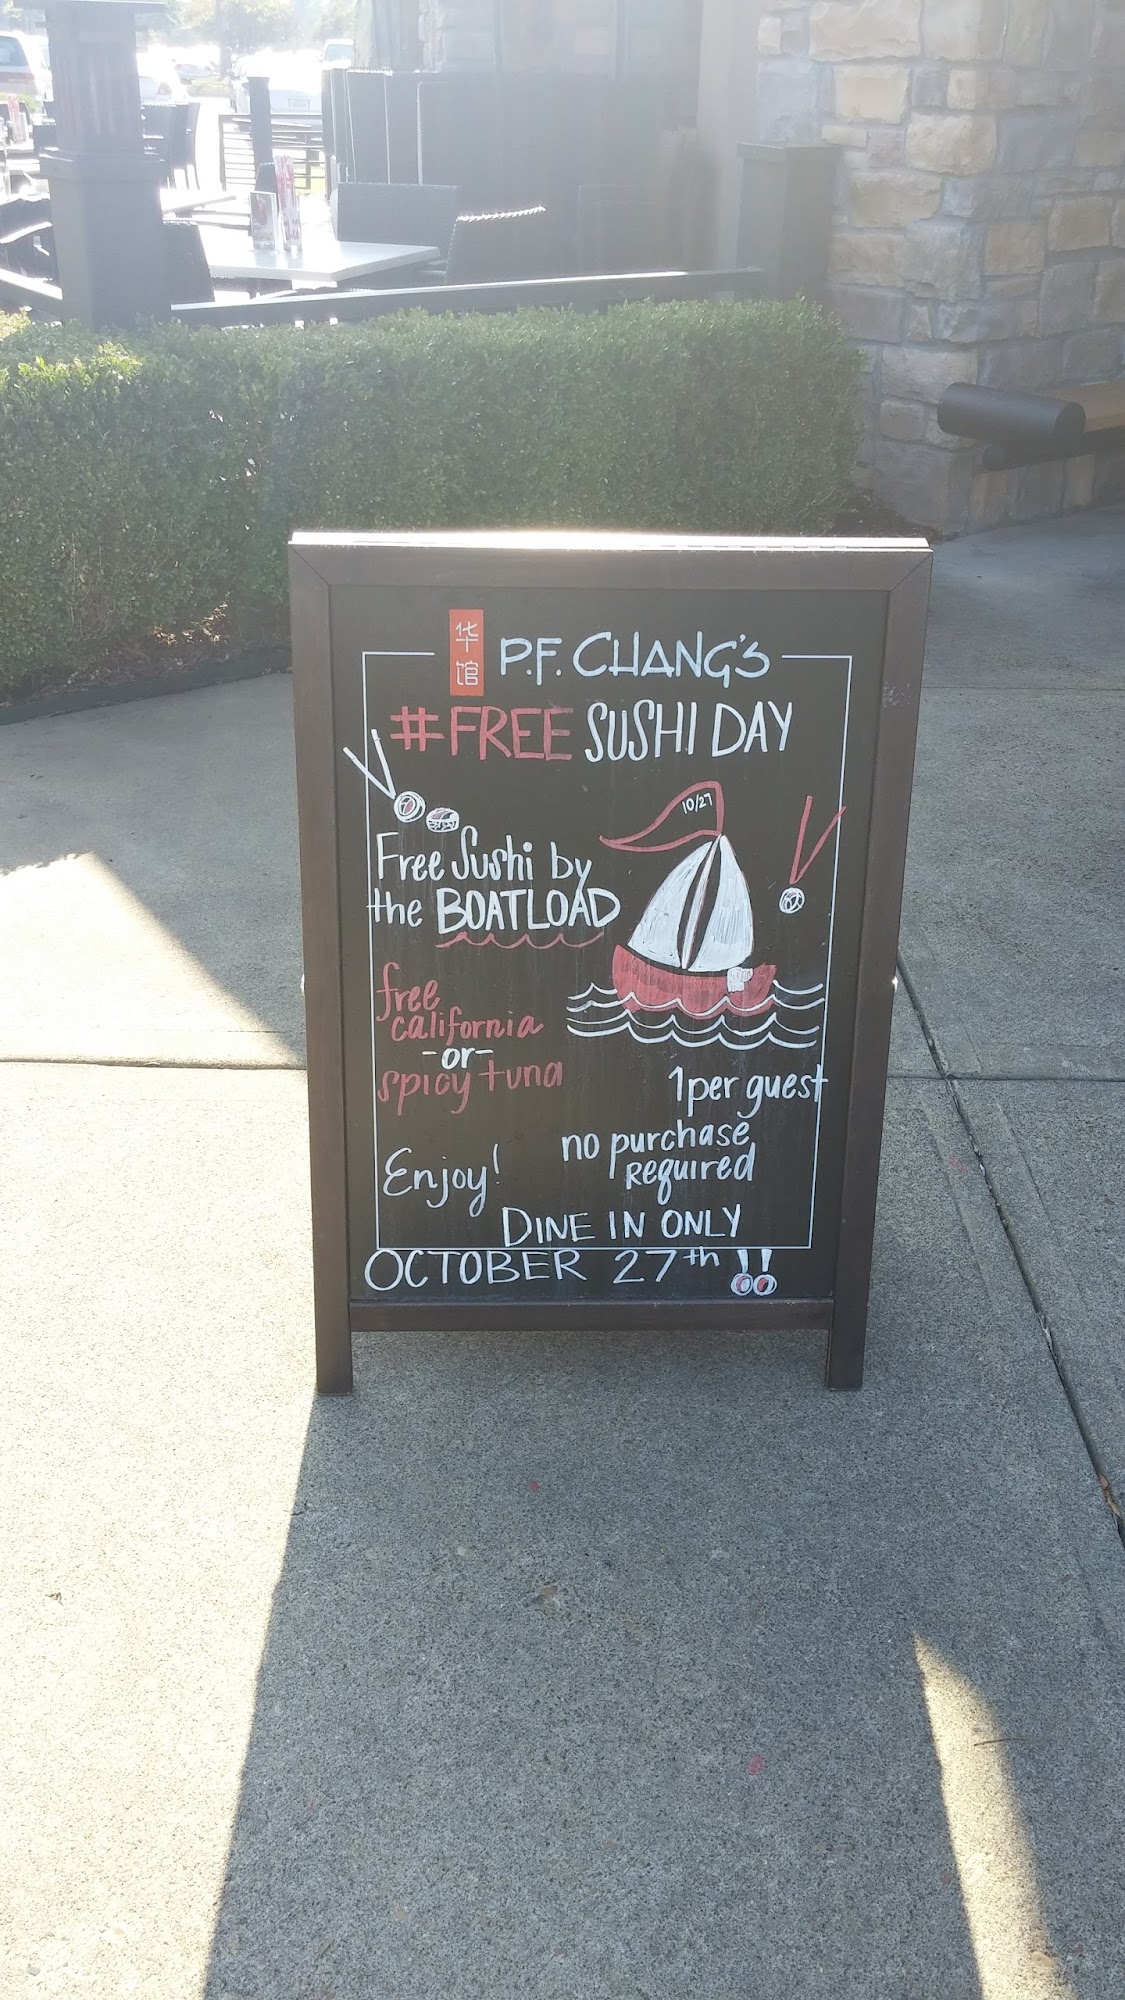 华馆
P.F. CHANG'S
#FREE SUSHI DAY
10/27
Free Sushi by
the BOATLOAD
free
california
-or-
spicy tuna
1 per guest
no purchase
required
Enjoy!
DINE IN ONLY
OCTOBER 27th !!